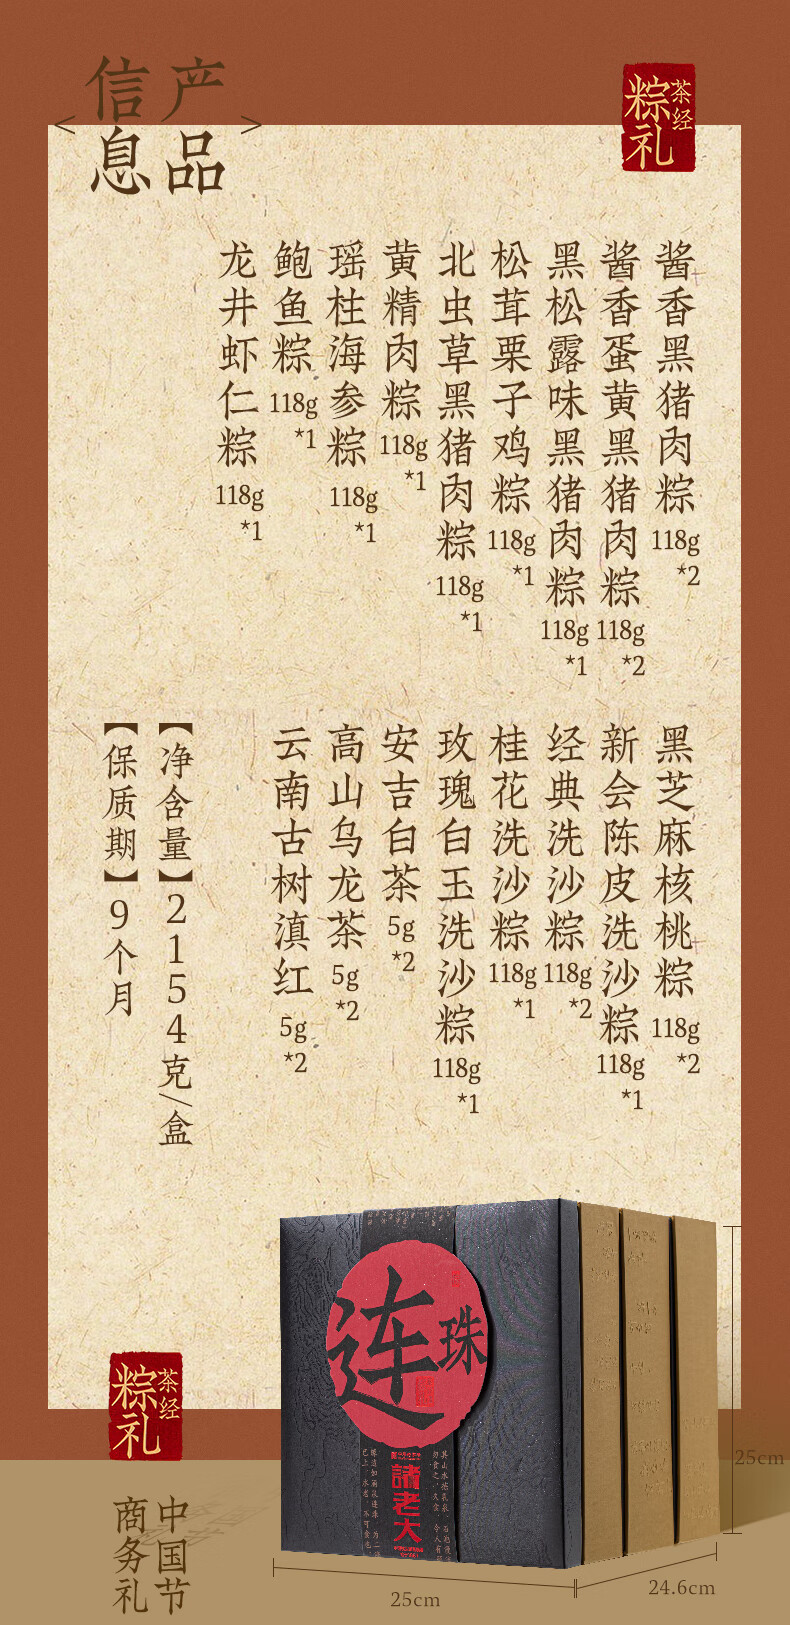 产品
信息
<
>
茶经
粽礼
酱香黑猪肉粽118g*2
酱香蛋黄黑猪肉粽118g*2
黑松露味黑猪肉粽118g*1
松茸栗子鸡粽118g*1
北虫草黑猪肉粽118g*1
黄精肉粽118g*1
瑶柱海参粽118g*1
鲍鱼粽118g*1
龙井虾仁粽118g*1
黑芝麻核桃粽118g*2
新会陈皮洗沙粽118g*1
经典洗沙粽118g*2
桂花洗沙粽118g*1
玫瑰白玉洗沙粽118g*1
安吉白茶5g*2
高山乌龙茶5g*2
云南古树滇红5g*2
【净含量】2154克/盒
【保质期】9个月
连珠
諸老大
25cm
25cm
24.6cm
茶经
粽礼
中国节
商务礼